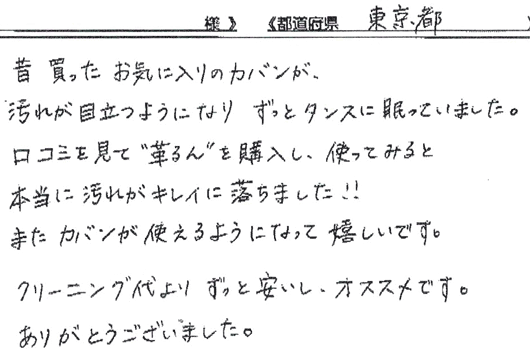 様 》 《都道府県 東京都
昔 買った お気に入りのカバンが、
汚れが目立つようになり ずっとタンスに眠っていました。
口コミを見て"革るん"を購入し、使ってみると
本当に汚れがキレイに落ちました!!
またカバンが使えるようになって嬉しいです。
クリーニング代より ずっと安いし、オススメです。
ありがとうございました。